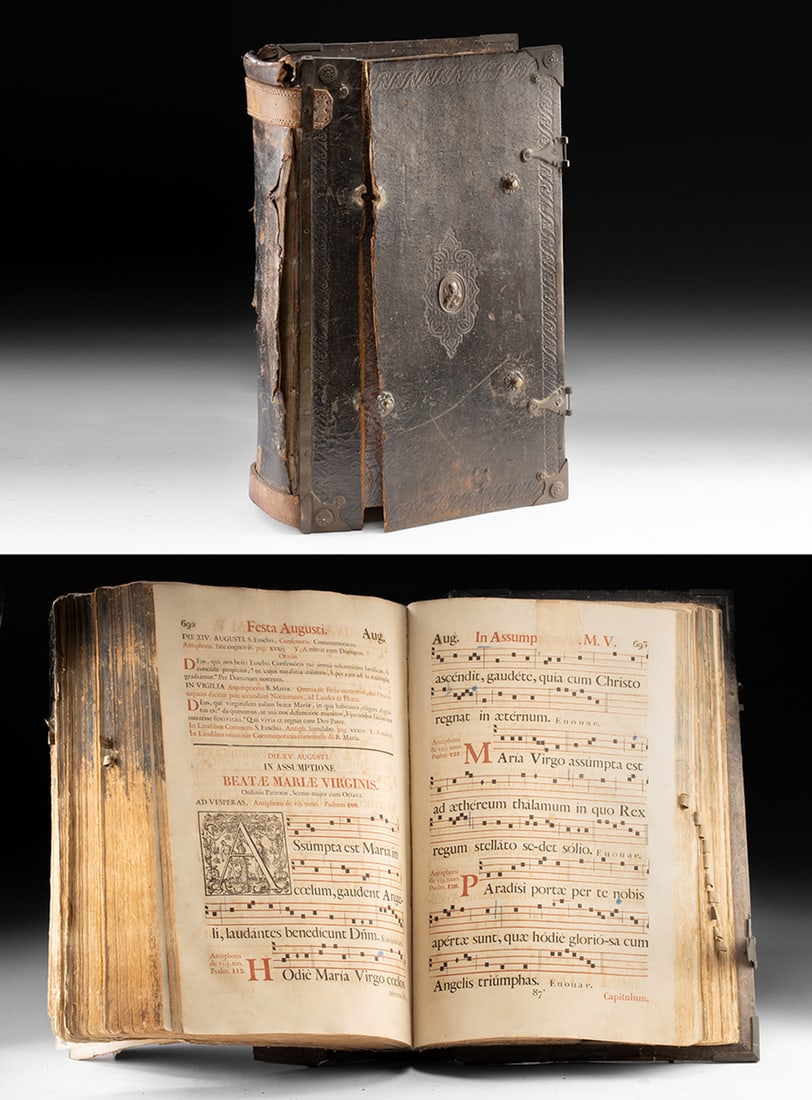 692 Festa Augusti. Aug.
DIE XIV. AUGUSTI. S. Eusebii, Confessoris. Commemoratio.
Antiphona
Oratio.
DEus, qui nos beati Eusebii Confessoris tui annua solemnitate lætificas:
Per Dominum nostrum.
IN VIGILIA Assumptionis B. Mariæ.
DEus, qui virginalem aulam beatæ Mariæ, in qua habitares, eligere dignatus
interesse festivitati. Qui vivis et regnas cum Deo Patre.
In Laudibus Commem. S. Eusebii, Antiph.
In Laudibus omittitur Commemoratio communis de B. Maria.
DIE XV. AUGUSTI.
IN ASSUMPTIONE
BEATÆ MARIÆ VIRGINIS.
Ordinis Patronæ, Sermo major cum Octava.
AD VESPERAS, Antiphona de vij. tono. Psalmus 109.
ASsúmpta est María in
cœlum, gaudent Ange-
li, laudántes benedícunt Dñm. Euouae.
Antiphona
de viij. ton.
Psalm. 112.
HOdiè María Virgo cœlos
Aug. In Assump M. V. 693
ascéndit, gaudéte, quia cum Christo
regnat in ætérnum. Euouae.
Antiphona
de viij. tono.
Psalm. 121.
MAría Virgo assúmpta est
ad æthéreum thálamum in quo Rex
regum stelláto se-det solio. Euouae.
Antiphona
de viij. tono.
Psalm. 126.
PAradísi portæ per te nobis
apértæ sunt, quæ hódiè glorió-sa cum
Angelis triúmphas. Euouae.
87
Capitulum.